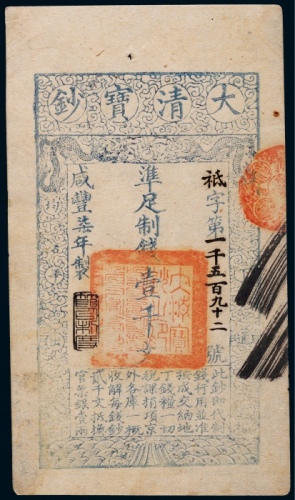 大清寶鈔
祗字第一千五百九十二號
準足制錢壹千文
咸豐柒年製
此鈔即代制
錢行用並准
按成交納地
丁錢糧一切
稅課捐項京
外各庫一概
收解每錢鈔
貳千文抵換
官票銀壹兩